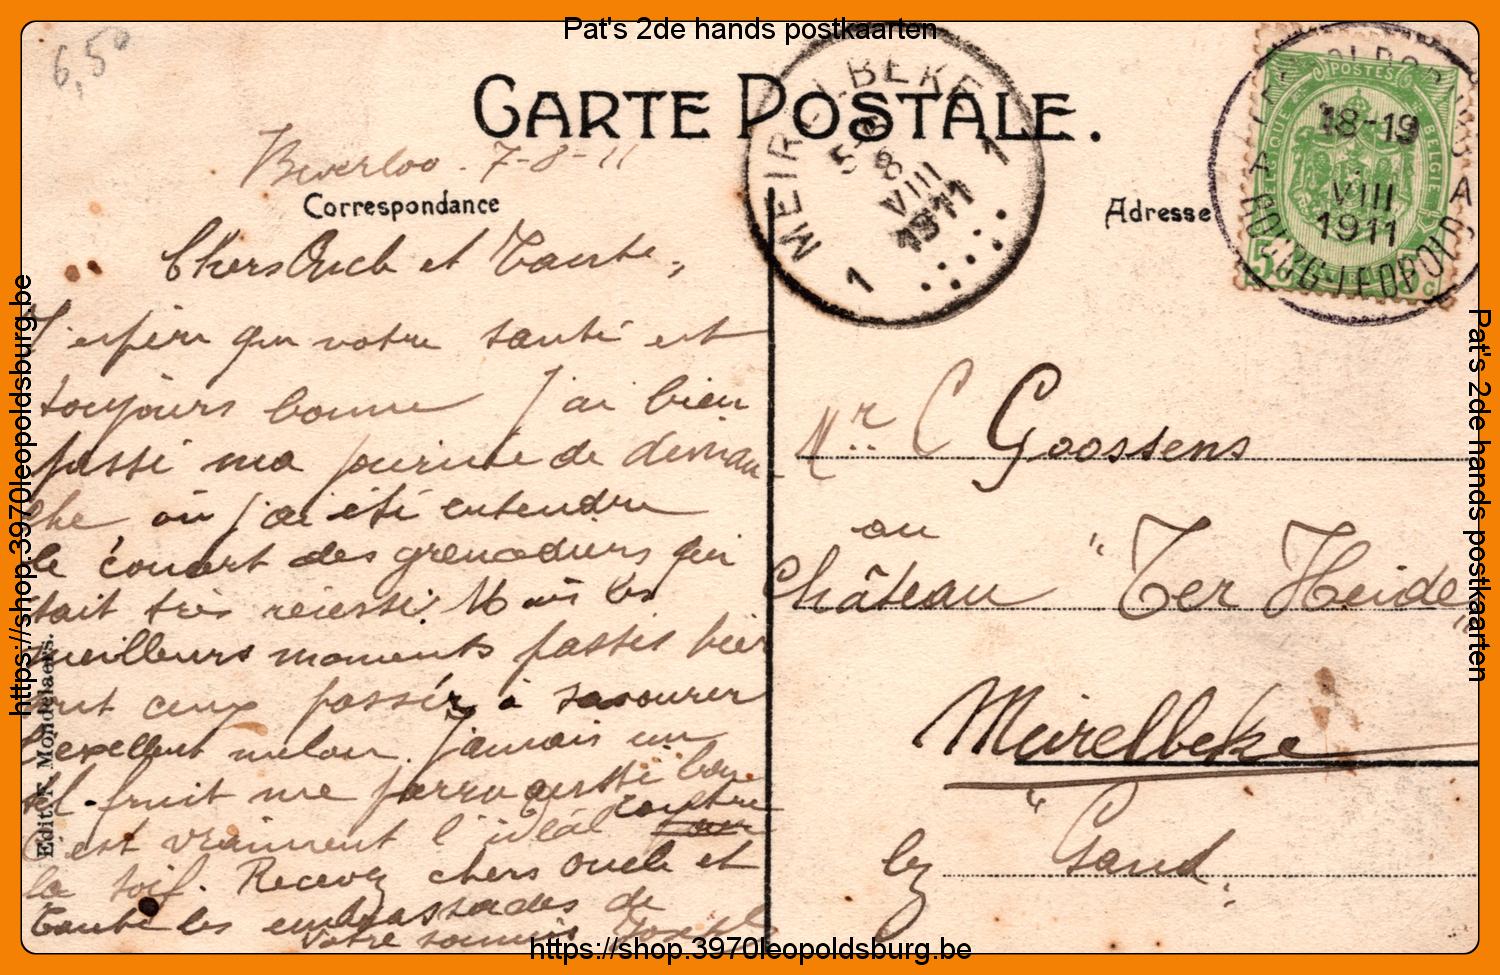 Pat's 2de hands postkaarten
6,50
CARTE POSTALE.
Beverloo. 7-8-11
Correspondance
Adresse
MEIRELBEKE
5-
8
VIII
1911
1
1
POSTES
BELGIQUE
BELGIË
5
5 c
18-19
VIII
1911
A
A
BOURG-LEOPOLD
Chers Oncle et Tante,
J'espère que votre santé est
toujours bonne J'ai bien
passé ma journée de diman-
che où j'ai été entendre
le concert des grenadiers qui
était très réussi. Mais les
meilleurs moments passés hier
sont ceux passés à savourer
l'excellent melon. Jamais un
tel fruit me parru aussi bon
C'est vraiment l'idéal contre
la soif. Recevez chers Oncle et
Tante les embrassades de
votre soumis Joseph
Mr. C Goossens
au
Château "Ter Heide"
Meirelbeke
lez Gand.
Edit. F. Mondelaers.
https://shop.3970leopoldsburg.be
Pat's 2de hands postkaarten
https://shop.3970leopoldsburg.be